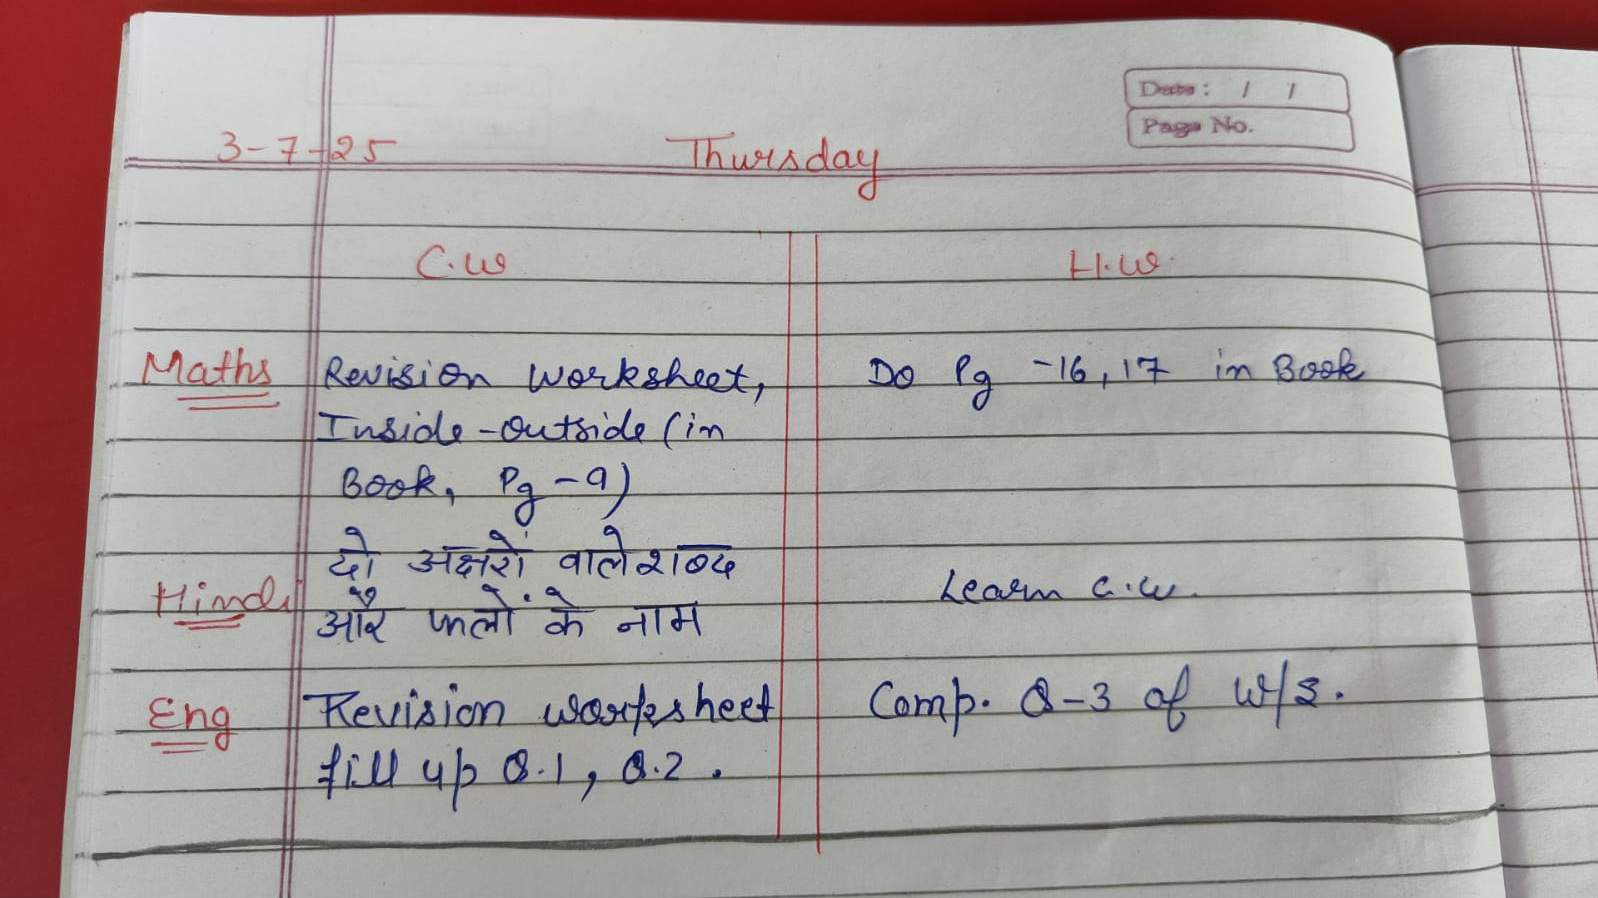 Date : / /
Page No.
3-7-25 Thursday
C.W H.W.
Maths Revision Worksheet, Do Pg -16, 17 in Book
Inside-Outside (in
Book, Pg -9)
दो अक्षरों वाले शब्द
Hindi Learn C.W.
और फलों के नाम
Eng Revision worksheet Comp. Q-3 of W/S.
fill up Q.1, Q.2.